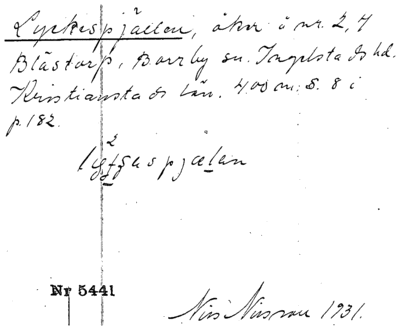 Lyckespjällen, åker i nr. 2, 4
Blästorp, Borrby sn. Ingelstads hd.
Kristianstads län. 400 m. S. 8 i
p. 182.
Nr 5441
Nils Nilsson 1931.